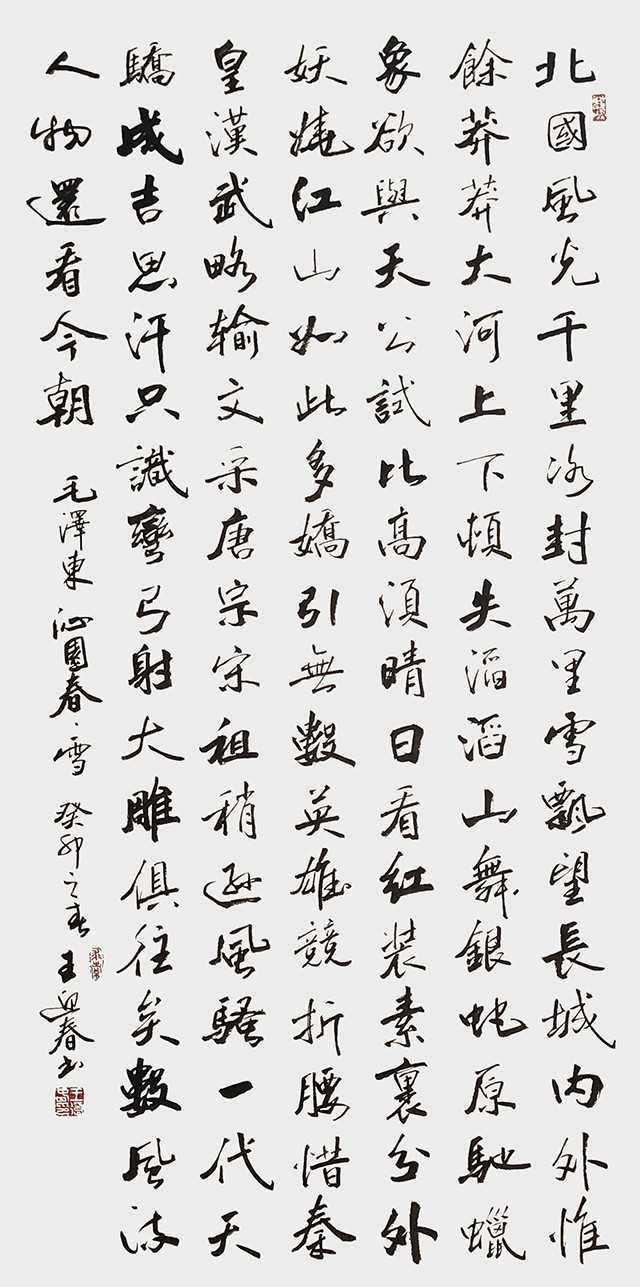 北國風光千里冰封萬里雪飄望長城内外惟
餘莽莽大河上下頓失滔滔山舞銀蛇原馳蠟
象欲與天公試比高須晴日看紅裝素裹分外
妖嬈江山如此多嬌引無數英雄競折腰惜秦
皇漢武略输文采唐宗宋祖稍遜風騷一代天
驕成吉思汗只識彎弓射大雕俱往矣數風流
人物還看今朝 毛澤東沁園春·雪 癸卯之春王迎春书